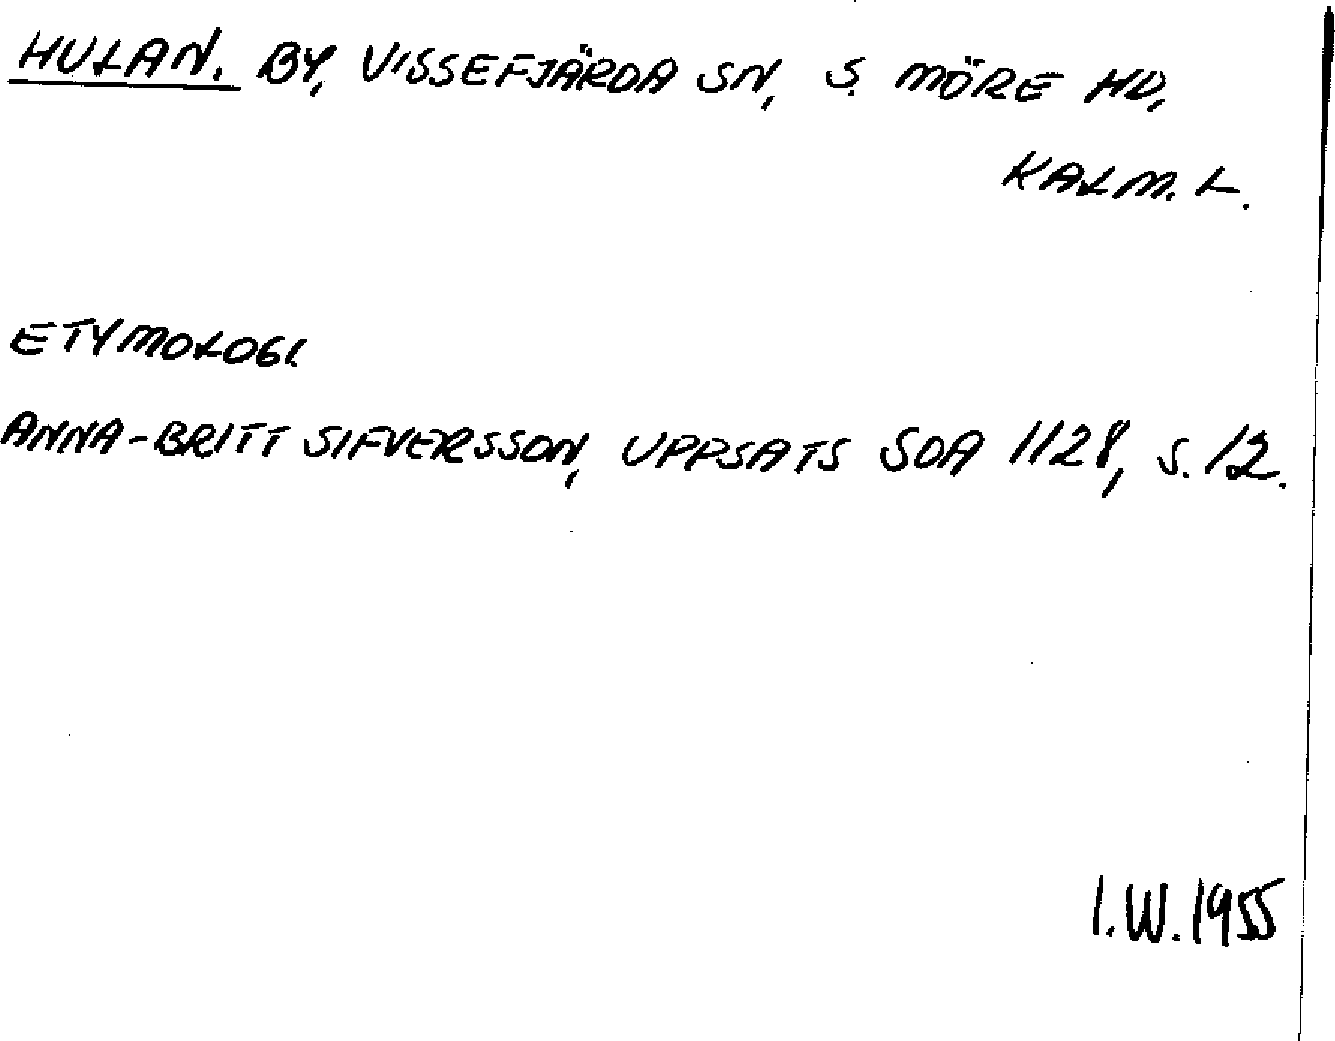 HULAN. BY, VISSEFJÄRDA SN, S. MÖRE HD,
KALM. L.
ETYMOLOGI.
ANNA-BRITT SIFVERSSON, UPPSATS SOA 1128, S. 12.
I.W. 1955